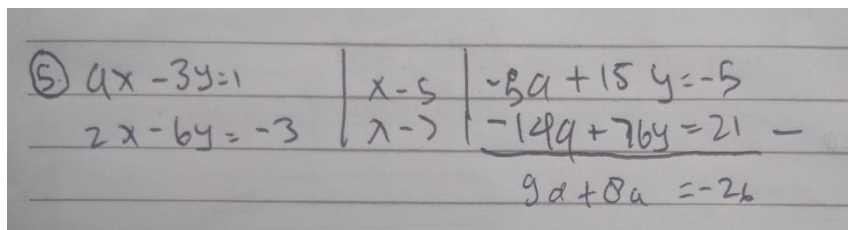 5. ax - 3y = 1 | x - 5 | -5a + 15y = -5
2x - 6y = -3 | x - 7 | -14a + 76y = 21 -
9a + 8a = -26